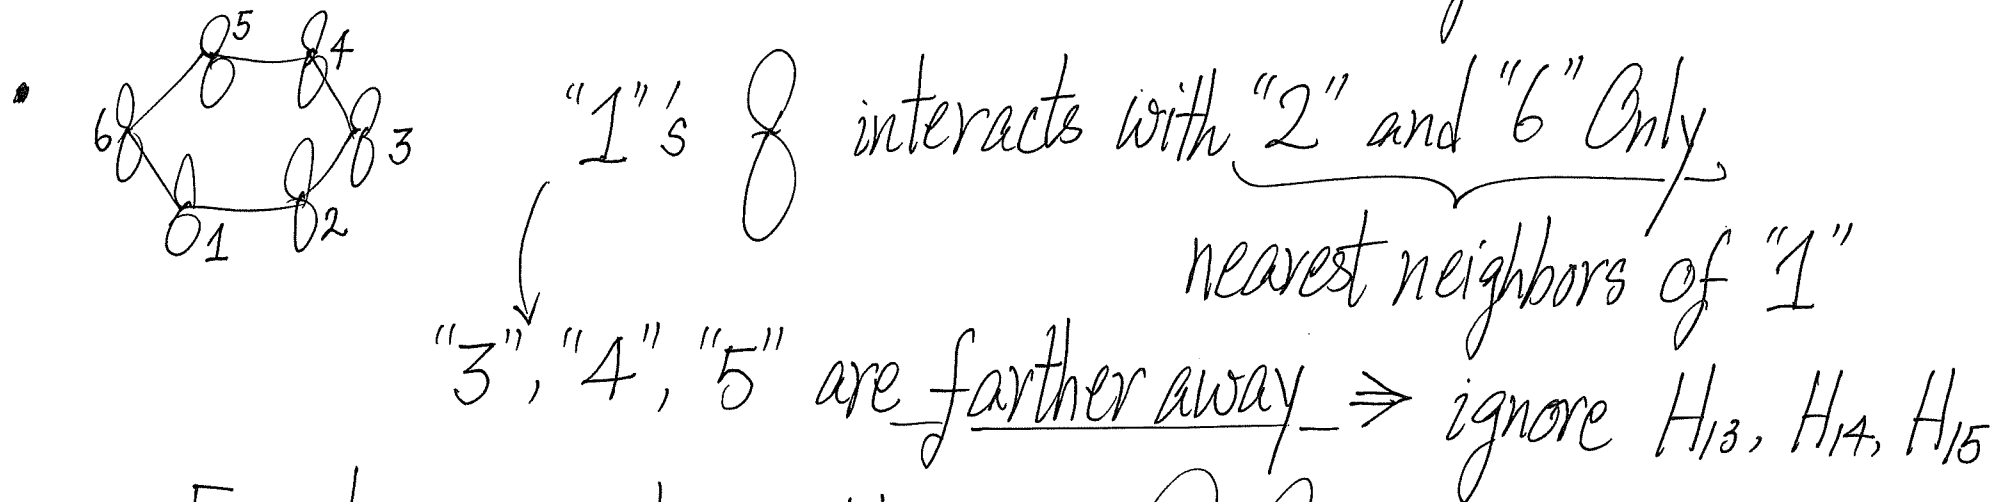 5
4
6
3
1
2
"1"'s interacts with "2" and "6" Only
nearest neighbors of "1"
"3", "4", "5" are farther away ⇒ ignore H13, H14, H15